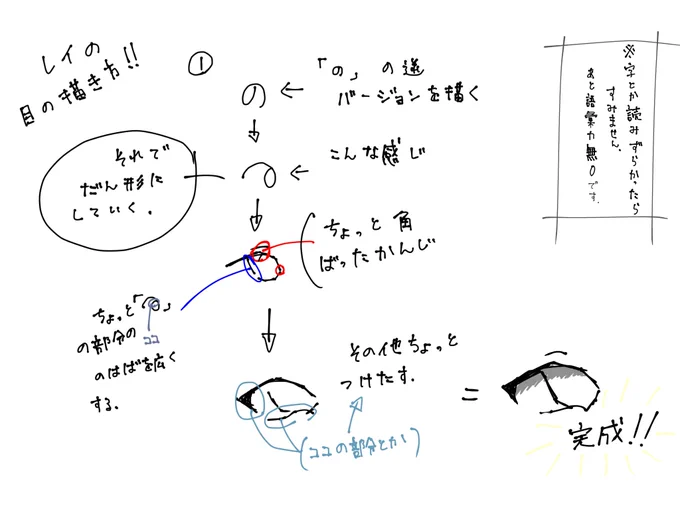 レイの
目の描き方!!
①
の
「の」の逆
バージョンを描く
こんな感じ
それで
だん形に
していく。
ちょっと角
ばったかんじ
ちょっと「
」
の部分の
ココ
のはばを広く
する。
その他ちょっと
つけたす.
(ココの部分とか)
=
完成!!
※字とか読みずらかったら
すみません。
あと語彙力無0です.